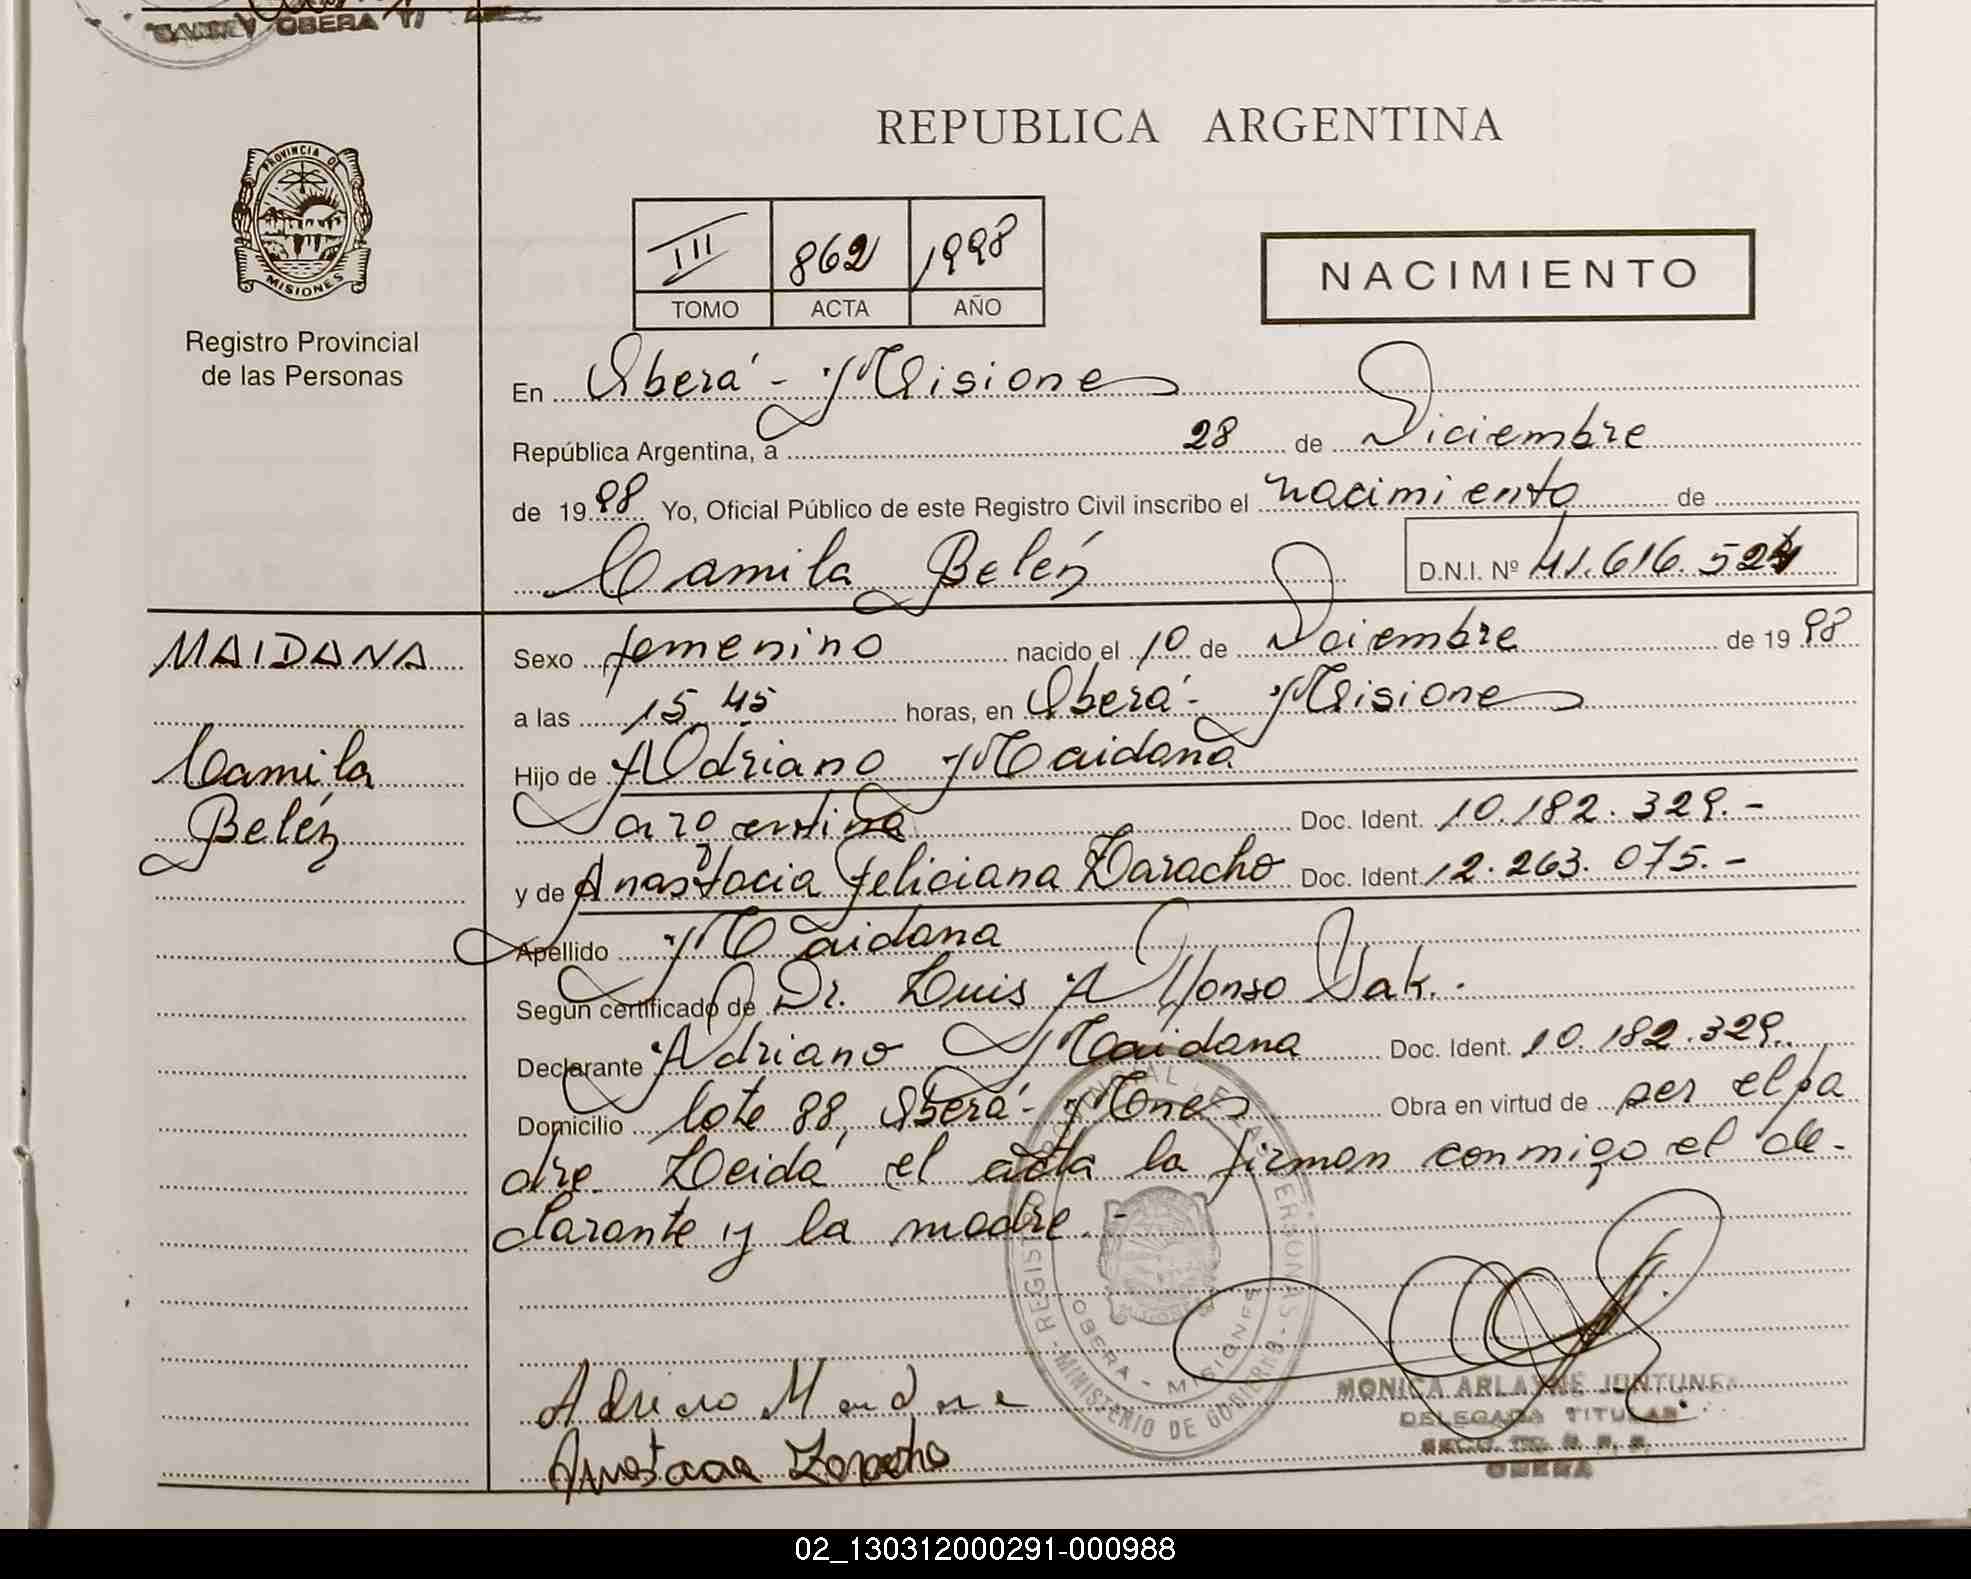 OBERA
REPUBLICA ARGENTINA
PROVINCIA DE
MISIONES
III 862 1998
TOMO ACTA AÑO
NACIMIENTO
Registro Provincial
de las Personas
En Oberá - Misiones
República Argentina, a 28 de Diciembre
de 1998 Yo, Oficial Público de este Registro Civil inscribo el nacimiento de
Camila Belén D.N.I. Nº 41.616.524
MAIDANA
Camila
Belén
Sexo femenino nacido el 10 de Diciembre de 1998
a las 15 45 horas, en Oberá - Misiones
Hijo de Adriano Maidana
argentina Doc. Ident. 10.182.329.-
y de Anastacia Feliciana Zaracho Doc. Ident 12.263.075.-
Apellido Maidana
Según certificado de Dr. Luis Alfonso Sak.-
Declarante Adriano Maidana Doc. Ident. 10.182.329.
Domicilio lote 88, Oberá - Mnes Obra en virtud de ser el pa
dre. Leida el acta la firman conmigo el de-
clarante y la madre.-
REGISTRO PROVINCIAL DE LAS PERSONAS - MINISTERIO DE GOBIERNO -
OBERA - MISIONES
MONICA ARLAYNE
DELEGADA TITULAR
OBERA
02_130312000291-000988